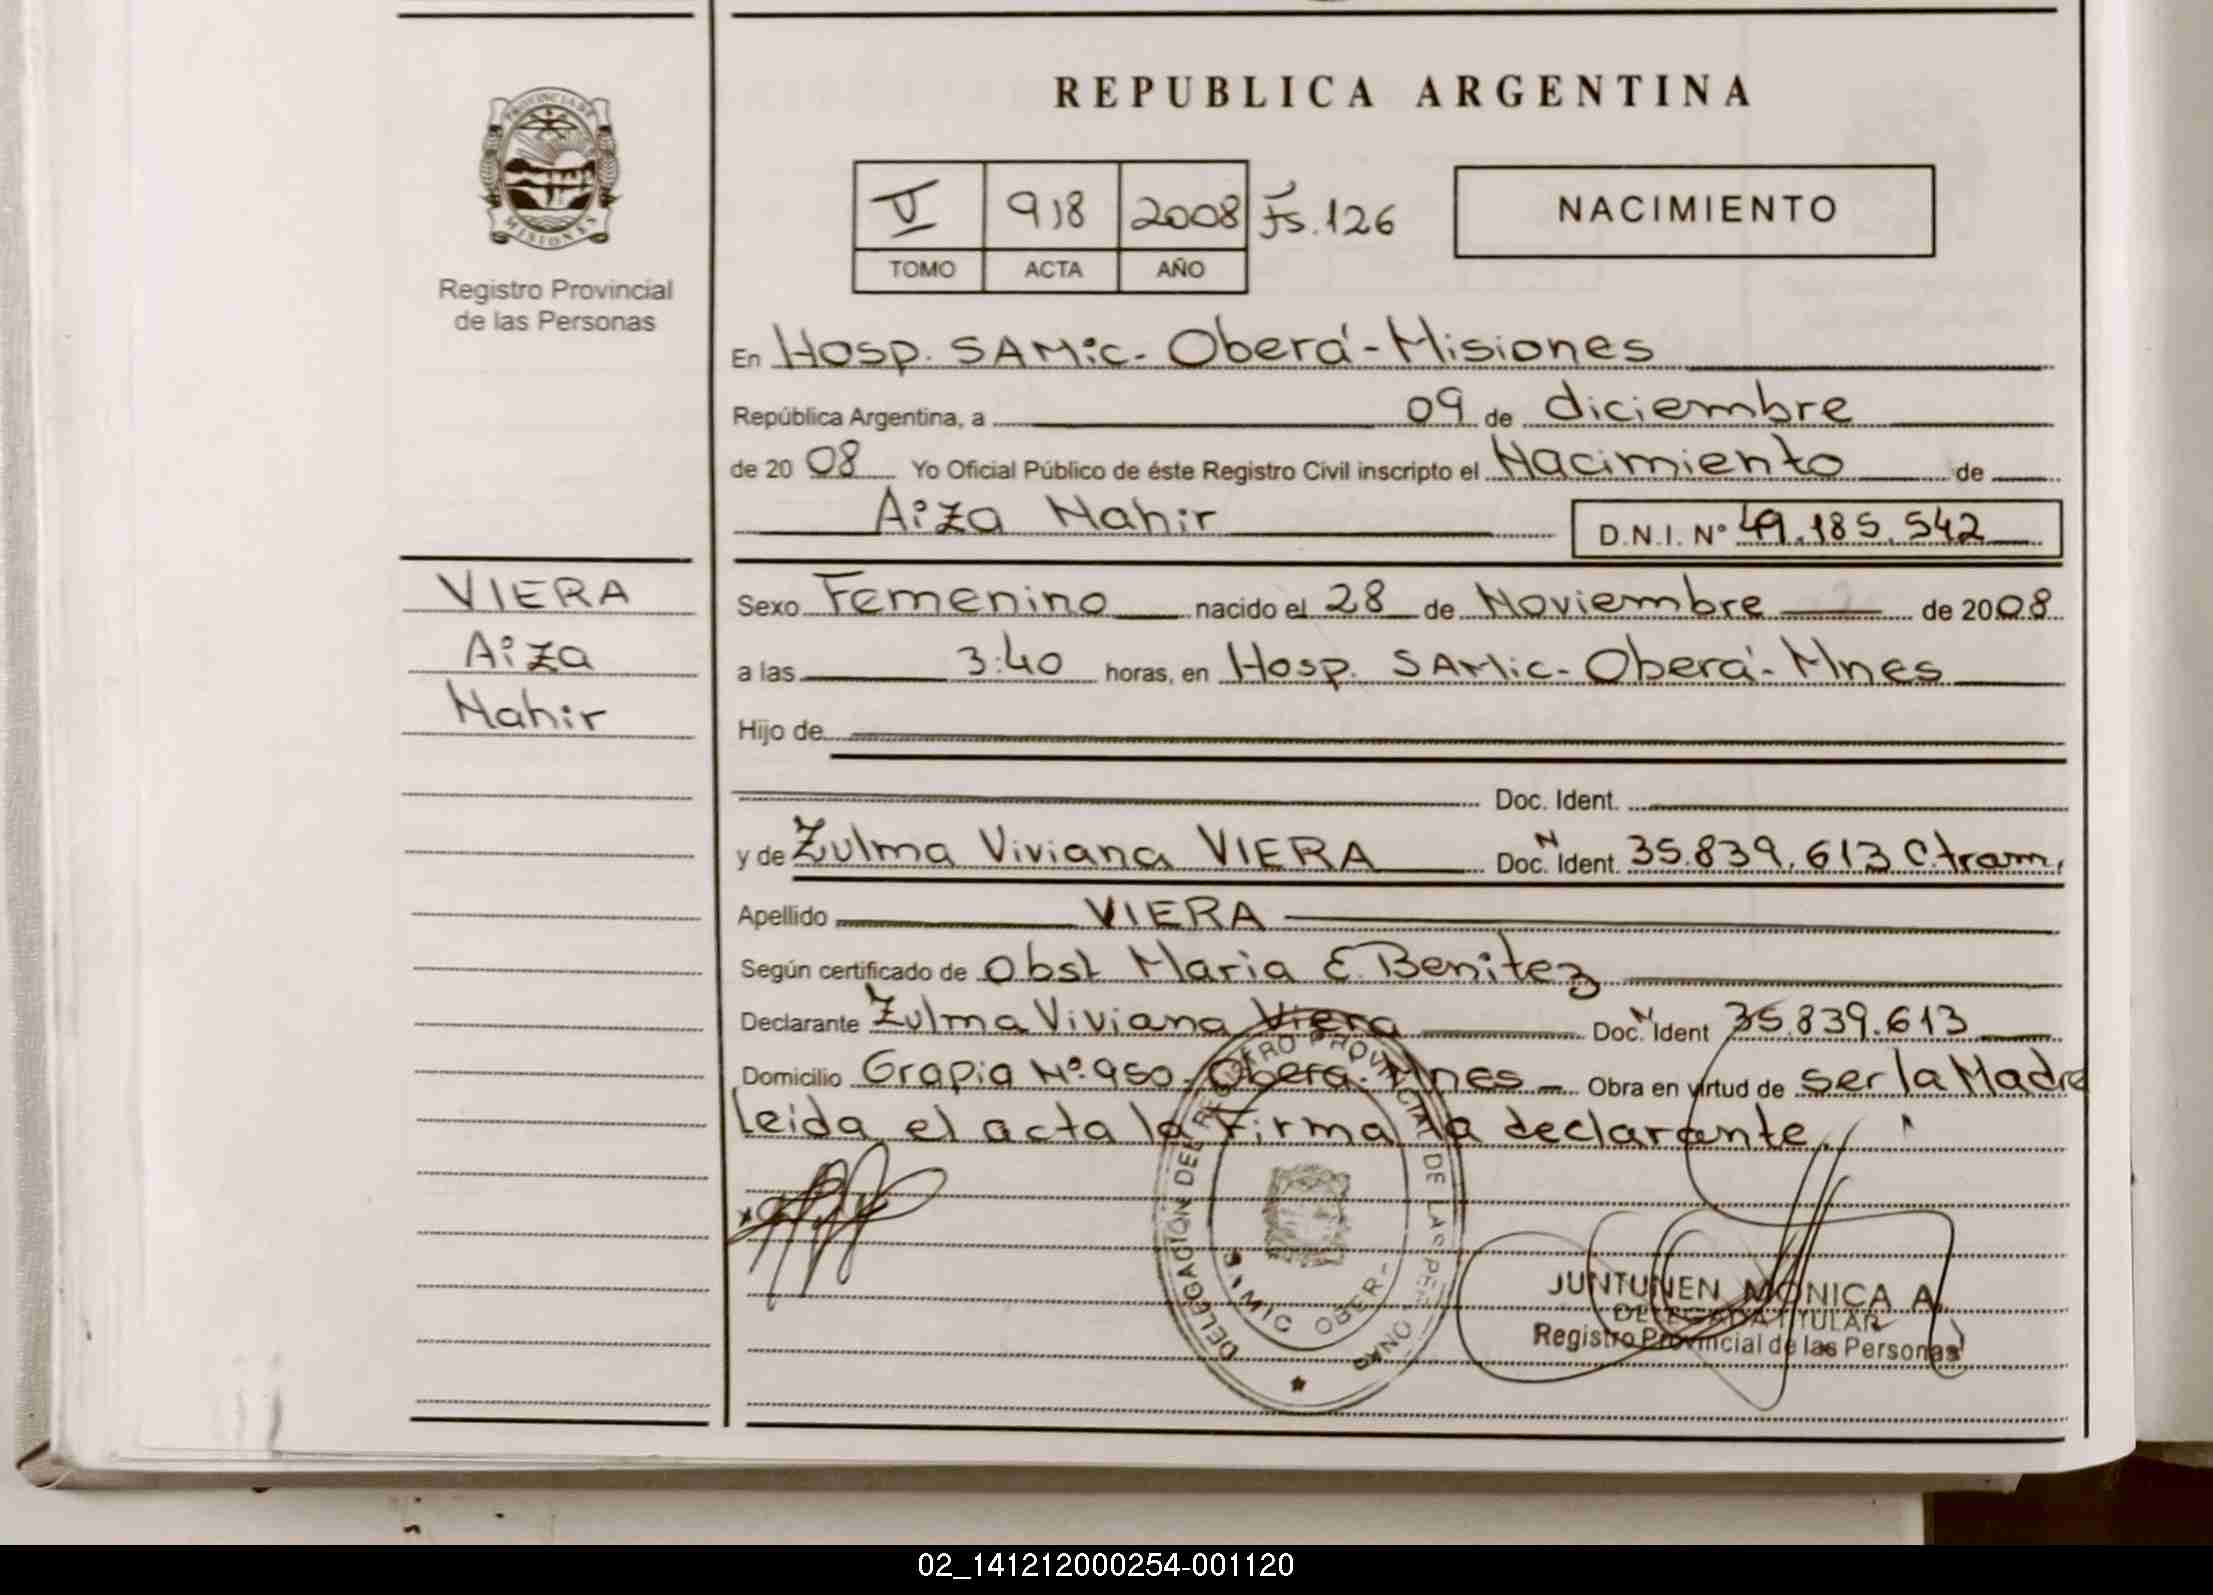 REPUBLICA ARGENTINA
PROVINCIA DE
MISIONES
Registro Provincial
de las Personas
V 918 2008 Fs. 126
TOMO ACTA AÑO
NACIMIENTO
En Hosp. SAMic. - Oberá - Misiones
República Argentina, a 09 de diciembre
de 2008 Yo Oficial Público de éste Registro Civil inscripto el Nacimiento de
Aiza Nahir D.N.I. Nº 49.185.542
VIERA
Aiza
Nahir
Sexo Femenino nacido el 28 de Noviembre de 2008
a las 3:40 horas, en Hosp. SAMic - Oberá - Mnes
Hijo de
Doc. Ident.
y de Zulma Viviana VIERA Doc. N Ident. 35.839.613 C.tram.
Apellido VIERA
Según certificado de Obst Maria E. Benitez
Declarante Zulma Viviana Viera Doc. N Ident 35.839.613
Domicilio Grapia Nº 950 - Oberá - Mnes Obra en virtud de ser la Madre
Leida el acta la Firma la declarante.
DELEGACIÓN DEL REGISTRO PROVINCIAL DE LAS PERSONAS
JUNTUNEN MONICA A.
DELEGADA TITULAR
Registro Provincial de las Personas
02_141212000254-001120